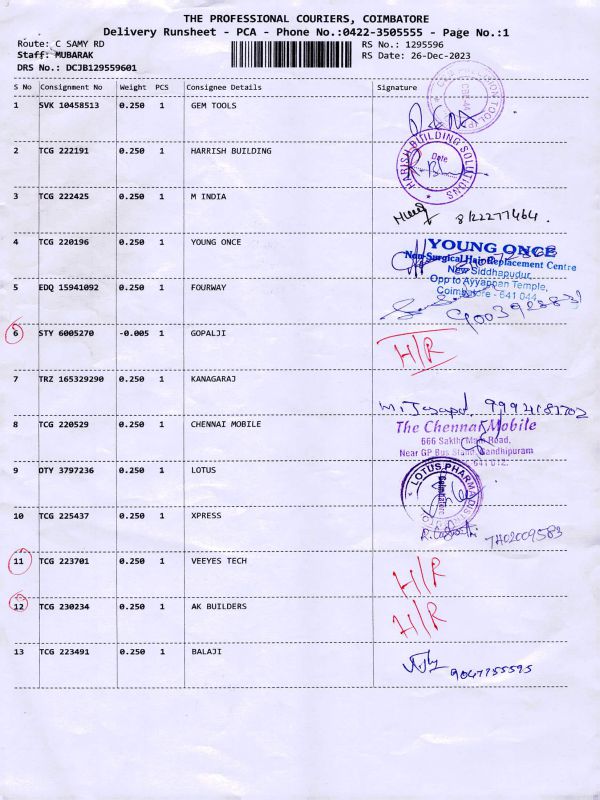 THE PROFESSIONAL COURIERS, COIMBATORE
Delivery Runsheet - PCA - Phone No.:0422-3505555 - Page No.:1
Route: C SAMY RD RS No.: 1295596
Staff: MUBARAK RS Date: 26-Dec-2023
DRS No.: DCJB129559601
S No Consignment No Weight PCS Consignee Details Signature
1 SVK 10458513 0.250 1 GEM TOOLS
2 TCG 222191 0.250 1 HARRISH BUILDING
HARISH BUILDING SOLUTIONS
Date
3 TCG 222425 0.250 1 M INDIA
8122277464.
4 TCG 220196 0.250 1 YOUNG ONCE
YOUNG ONCE
Non-Surgical Hair Replacement Centre
New Siddhapudur,
Opp to Ayyappan Temple,
Coimbatore - 641 044.
5 EDQ 15941092 0.250 1 FOURWAY
6 STY 6005270 -0.005 1 GOPALJI H/R
7 TRZ 165329290 0.250 1 KANAGARAJ
8 TCG 220529 0.250 1 CHENNAI MOBILE
The Chennai Mobile
666 Sakthi Main Road,
Near GP Bus Stand, Gandhipuram
641 012.
9 DTY 3797236 0.250 1 LOTUS
LOTUS PHARMA
Coimbatore
10 TCG 225437 0.250 1 XPRESS
11 TCG 223701 0.250 1 VEEYES TECH H/R
12 TCG 230234 0.250 1 AK BUILDERS H/R
13 TCG 223491 0.250 1 BALAJI
9047755595